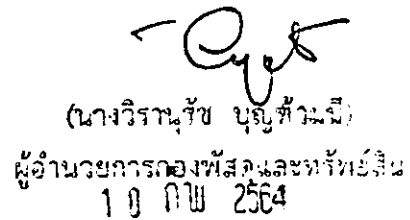 (นางวิรานุรัช บุญท้วมมี)
ผู้อำนวยการกองพัสดุและทรัพย์สิน
10 กพ 2564